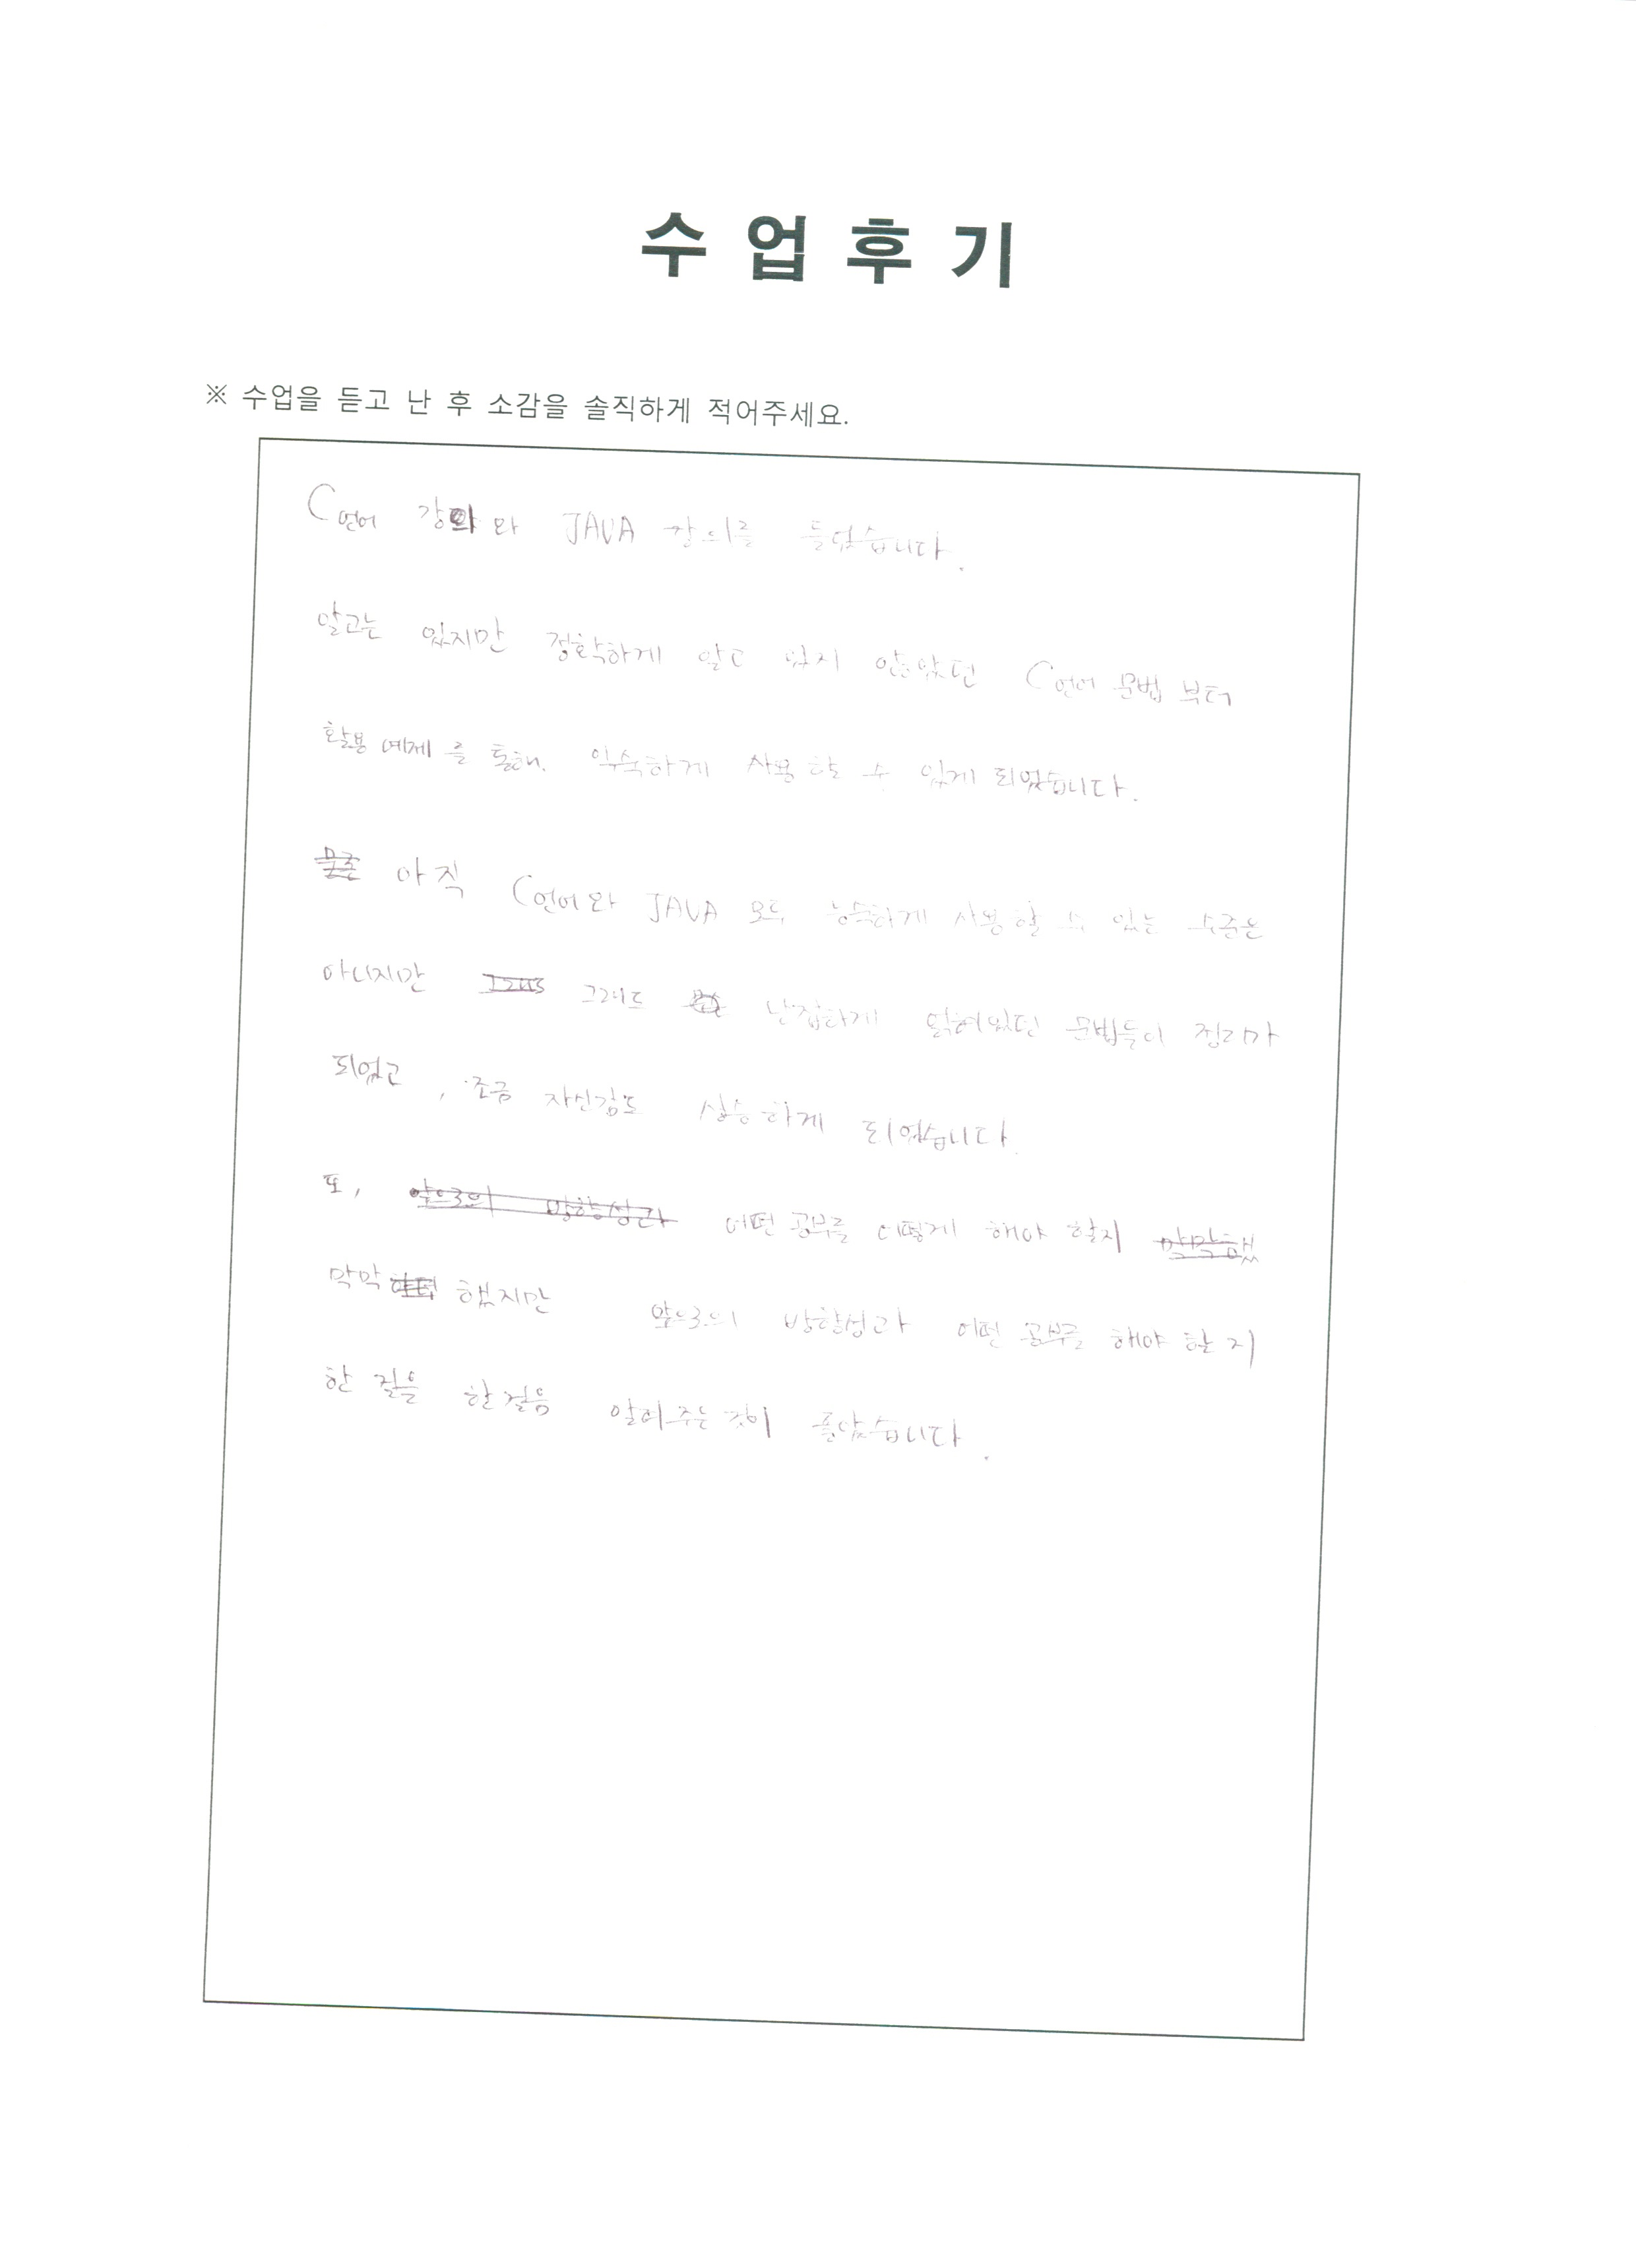 수 업 후 기
※ 수업을 듣고 난 후 소감을 솔직하게 적어주세요.
C언어 강의와 JAVA 강의를 들었습니다.
알고는 있지만 정확하게 알고 있지 않았던 C언어 문법 부터
활용 예제를 통해. 익숙하게 사용할 수 있게 되었습니다.
아직 C언어와 JAVA 모두 능숙하게 사용할 수 있는 수준은
아니지만 그래도 난잡하게 얽혀있던 문법들이 정리가
되었고, 조금 자신감도 상승하게 되었습니다.
또, 앞으로의 방향성과 어떤 공부를 어떻게 해야 할지 막막했
막막 했지만 앞으로의 방향성과 어떤 공부를 해야 할지
한 걸음 한걸음 알려주는 것이 좋았습니다.